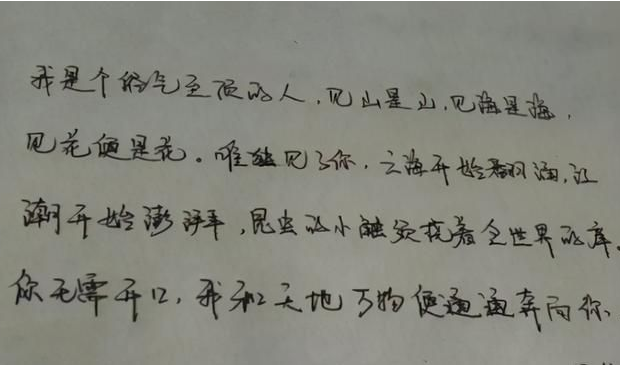 我是个俗气至顶的人，见山是山，见海是海，
见花便是花。唯独见了你，云海开始翻涌，江
潮开始澎湃，昆虫的小触须挠着全世界的痒。
你无需开口，我和天地万物便通通奔向你。